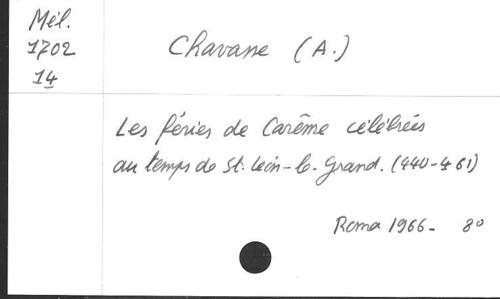 Mél.
1702
14
Chavasse (A.)
Les féries de Carême célébrées
au temps de St. Léon-le-Grand. (440-461)
Roma 1966- 8°